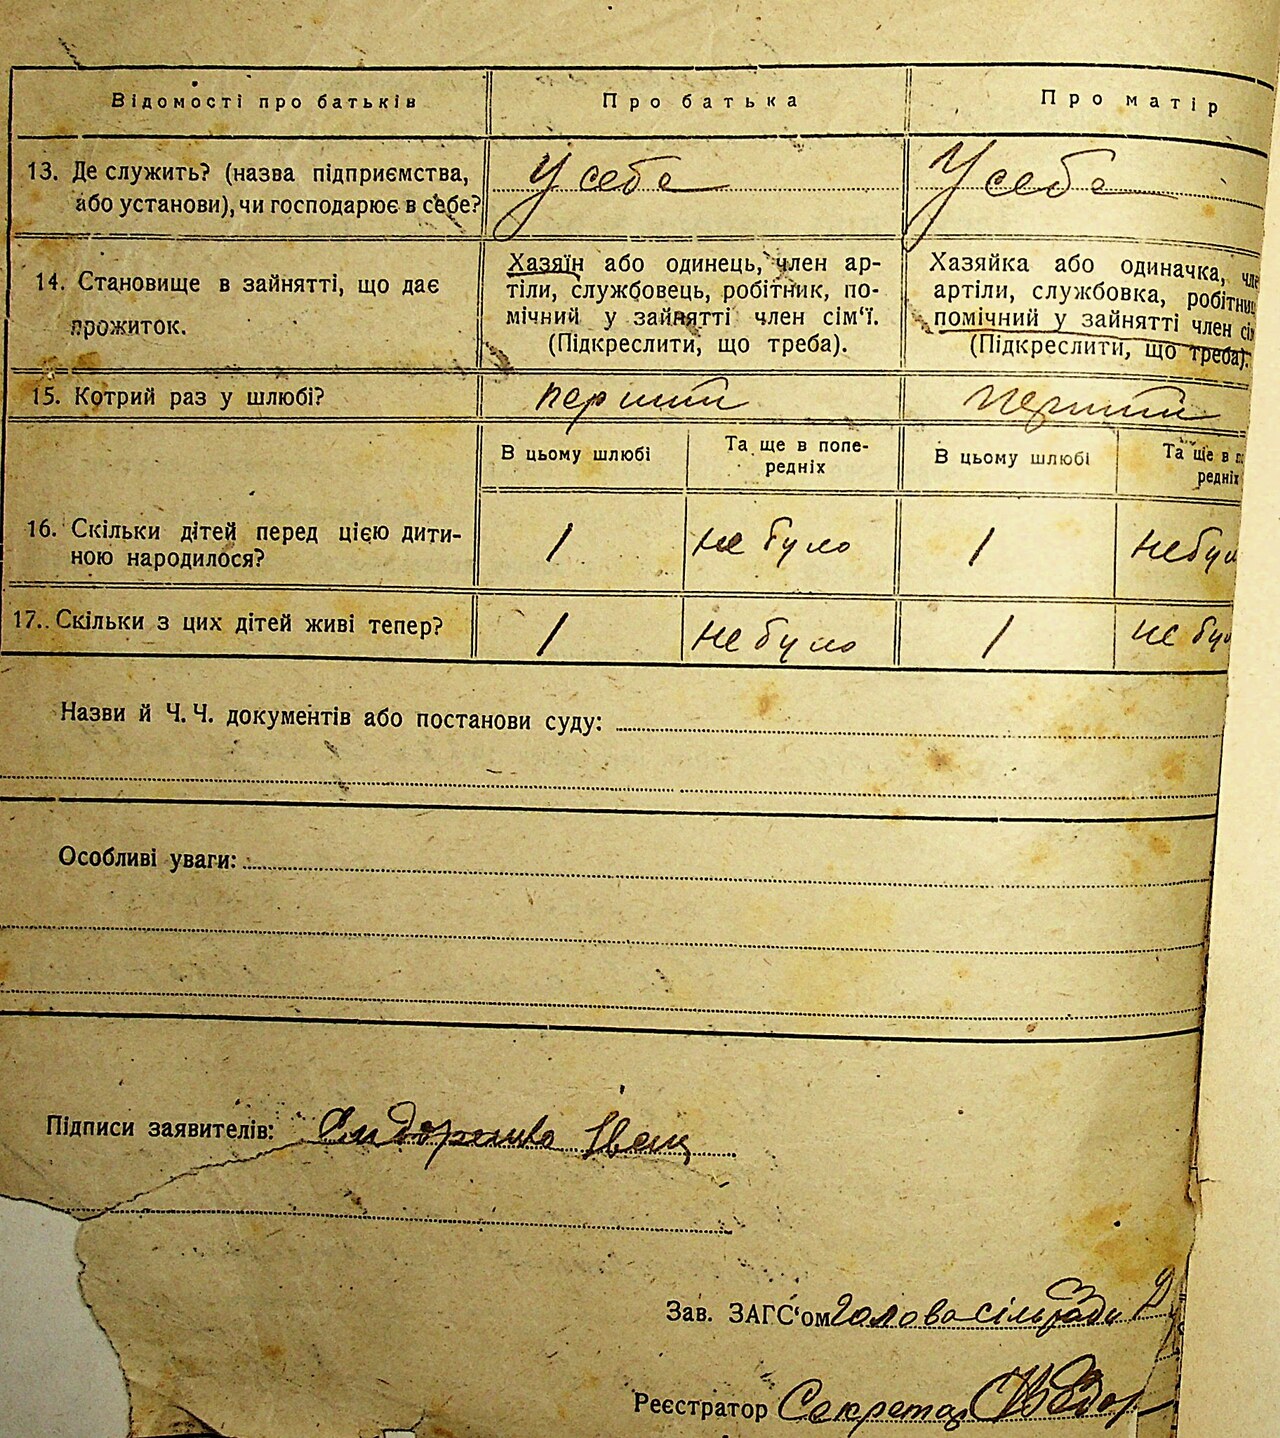 Відомості про батьків Про батька Про матір
13. Де служить? (назва підприємства, або установи), чи господарює в себе? У себе У себе
14. Становище в зайнятті, що дає прожиток.
Хазяїн або одинець, член ар-
тіли, службовець, робітник, по-
мічний у зайнятті член сім‘ї.
(Підкреслити, що треба).
Хазяйка або одиначка, чле
артіли, службовка, робітниц
помічний у зайнятті член сім
(Підкреслити, що треба).
15. Котрий раз у шлюбі? перший перший
В цьому шлюбі Та ще в попе-
редніх В цьому шлюбі Та ще в по
редніх
16. Скільки дітей перед цією дити-
ною народилося? 1 не було 1 не бул
17. Скільки з цих дітей живі тепер? 1 не було 1 не бул
Назви й Ч. Ч. документів або постанови суду:
Особливі уваги:
Підписи заявителів: Сидоренко Іван
Зав. ЗАГС‘ом Голова сільради
Реєстратор Секретар